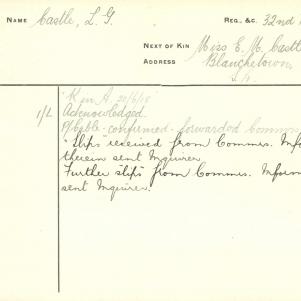 NAME Castle, L. G.
REG. &c. 32nd
NEXT OF KIN Miss E. M. Castl
ADDRESS Blanchetown
S/A.
"K in A. 20/6/18
1/L Acknowledged.
"Cable" confirmed - forwarded Commns
"Slips" received from Commns. Info
therein sent Inquirer.
Further "slips" from Commns. Inform
sent Inquirer.